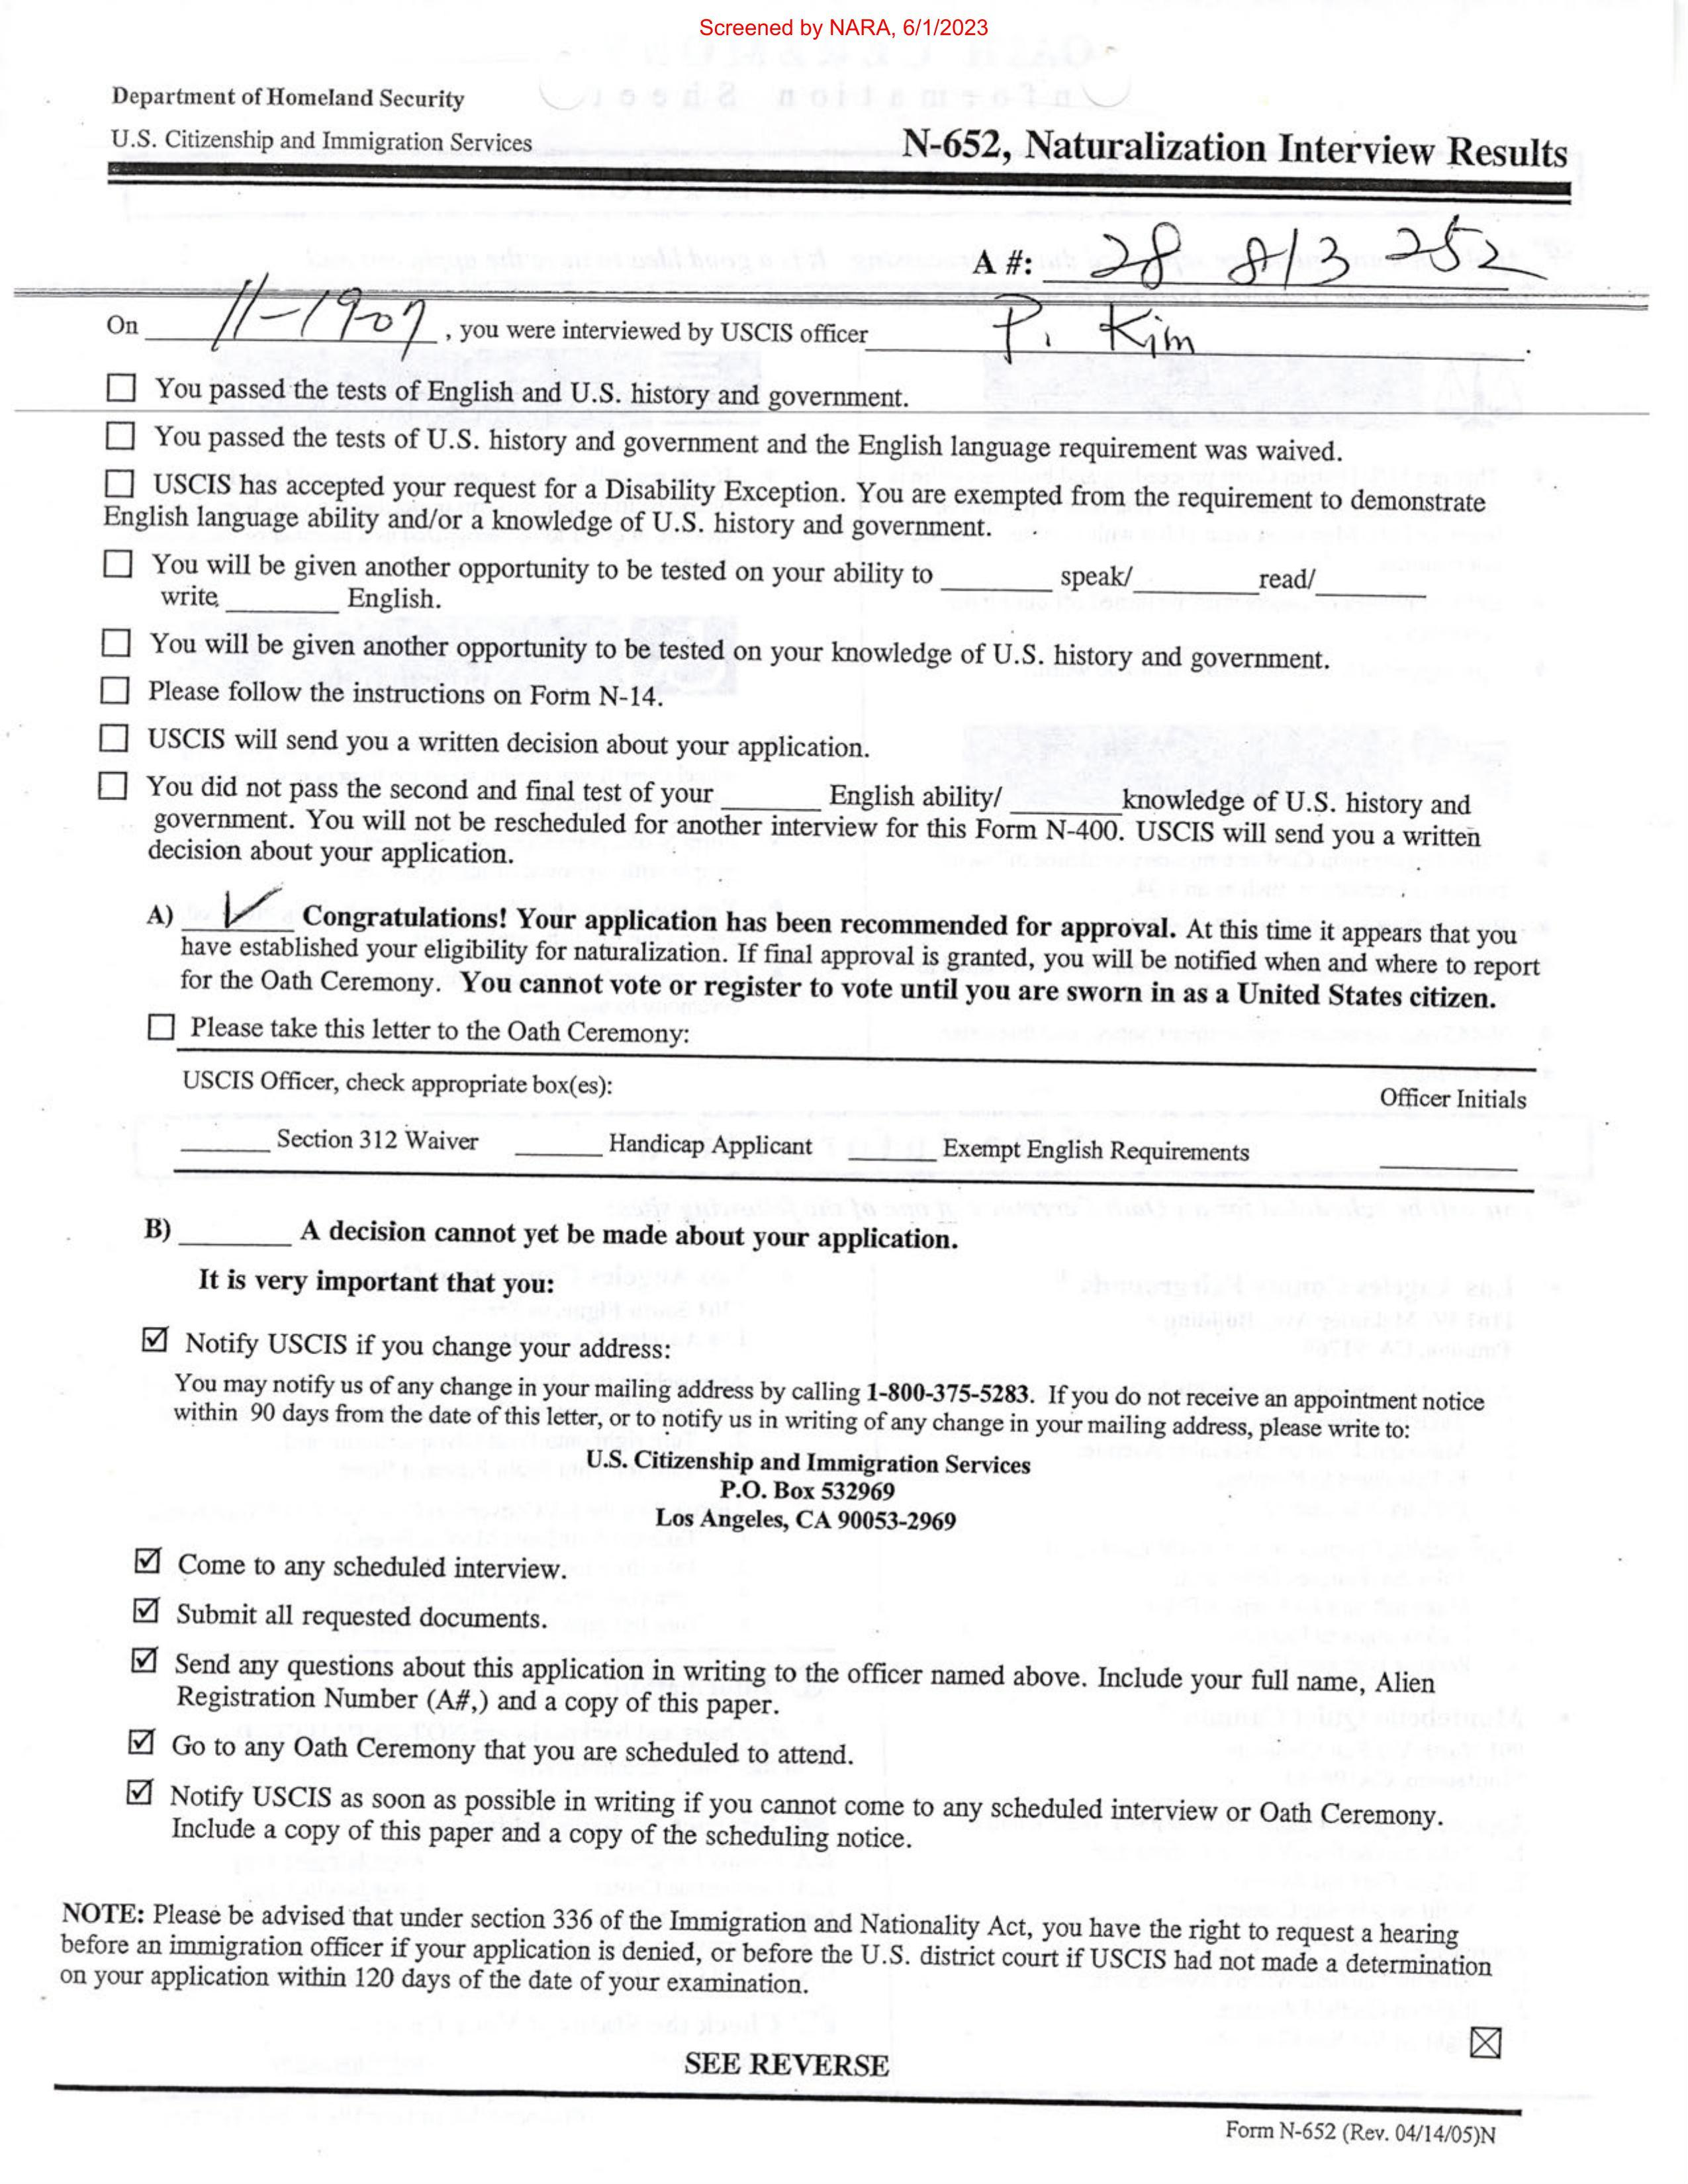 Screened by NARA, 6/1/2023
Department of Homeland Security
U.S. Citizenship and Immigration Services
N-652, Naturalization Interview Results
A #: 28 813 252
On 11-1907, you were interviewed by USCIS officer P. Kim.
☐ You passed the tests of English and U.S. history and government.
☐ You passed the tests of U.S. history and government and the English language requirement was waived.
☐ USCIS has accepted your request for a Disability Exception. You are exempted from the requirement to demonstrate
English language ability and/or a knowledge of U.S. history and government.
☐ You will be given another opportunity to be tested on your ability to ________ speak/ ________ read/ ________
write ________ English.
☐ You will be given another opportunity to be tested on your knowledge of U.S. history and government.
☐ Please follow the instructions on Form N-14.
☐ USCIS will send you a written decision about your application.
☐ You did not pass the second and final test of your ________ English ability/ ________ knowledge of U.S. history and
government. You will not be rescheduled for another interview for this Form N-400. USCIS will send you a written
decision about your application.
A) ✓ Congratulations! Your application has been recommended for approval. At this time it appears that you
have established your eligibility for naturalization. If final approval is granted, you will be notified when and where to report
for the Oath Ceremony. You cannot vote or register to vote until you are sworn in as a United States citizen.
☐ Please take this letter to the Oath Ceremony:
USCIS Officer, check appropriate box(es):
Officer Initials
________ Section 312 Waiver ________ Handicap Applicant ________ Exempt English Requirements ________
B) ________ A decision cannot yet be made about your application.
It is very important that you:
☑ Notify USCIS if you change your address:
You may notify us of any change in your mailing address by calling 1-800-375-5283. If you do not receive an appointment notice
within 90 days from the date of this letter, or to notify us in writing of any change in your mailing address, please write to:
U.S. Citizenship and Immigration Services
P.O. Box 532969
Los Angeles, CA 90053-2969
☑ Come to any scheduled interview.
☑ Submit all requested documents.
☑ Send any questions about this application in writing to the officer named above. Include your full name, Alien
Registration Number (A#,) and a copy of this paper.
☑ Go to any Oath Ceremony that you are scheduled to attend.
☑ Notify USCIS as soon as possible in writing if you cannot come to any scheduled interview or Oath Ceremony.
Include a copy of this paper and a copy of the scheduling notice.
NOTE: Please be advised that under section 336 of the Immigration and Nationality Act, you have the right to request a hearing
before an immigration officer if your application is denied, or before the U.S. district court if USCIS had not made a determination
on your application within 120 days of the date of your examination.
☒
SEE REVERSE
Form N-652 (Rev. 04/14/05)N